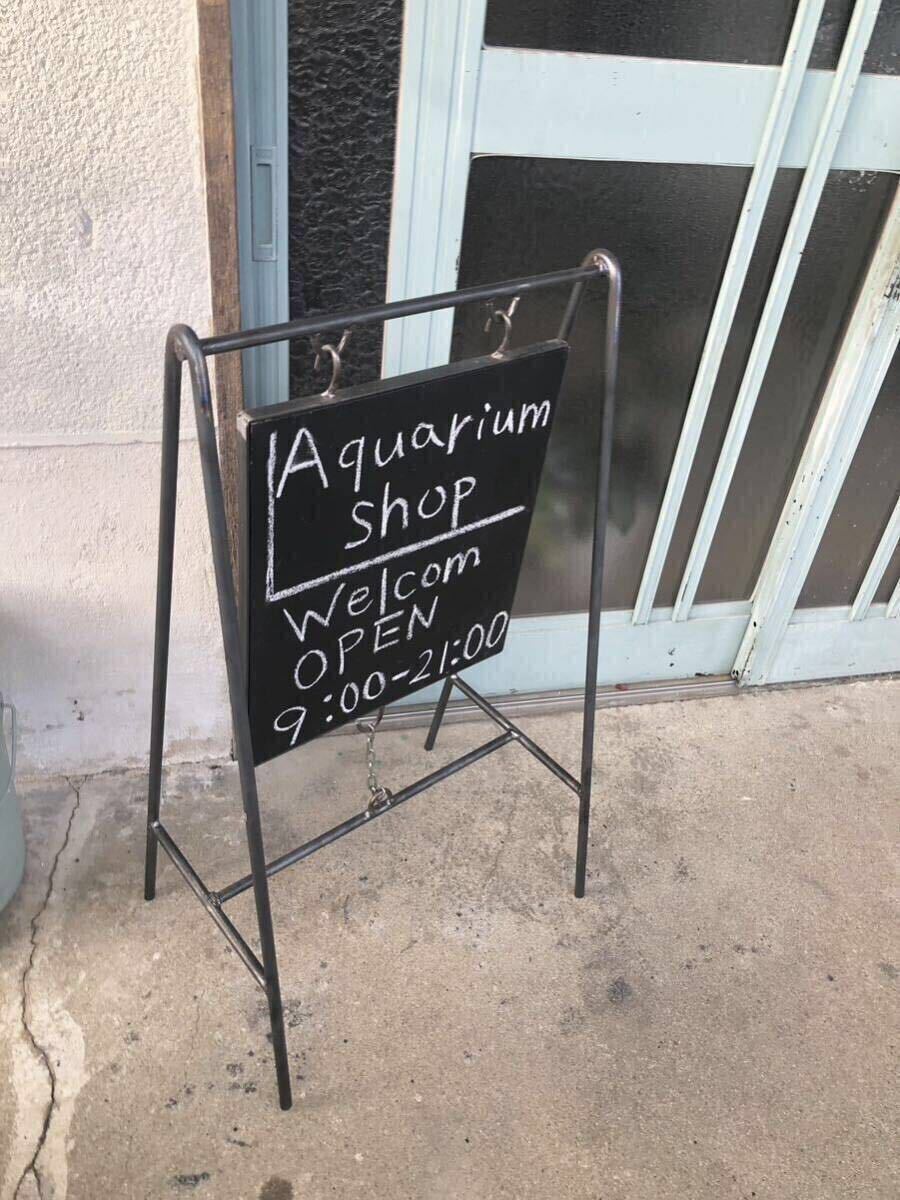 Aquarium
Shop
Welcom
OPEN
9:00-21:00